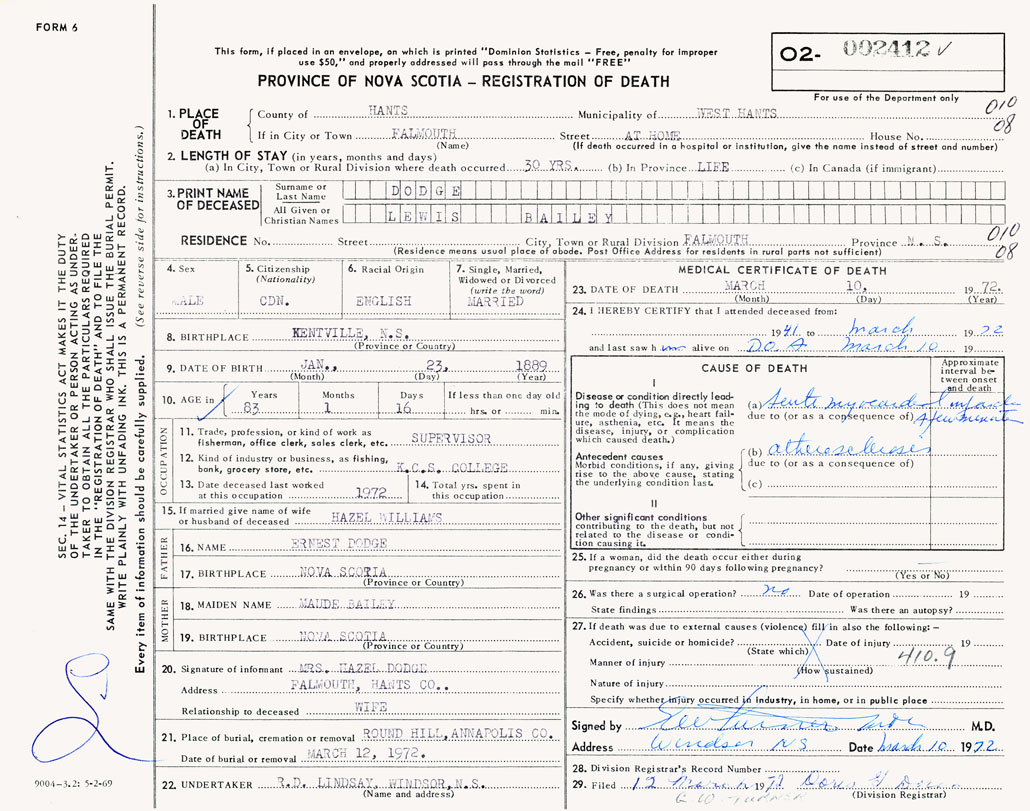 FORM 6
This form, if placed in an envelope, on which is printed "Dominion Statistics – Free, penalty for improper
use $50," and properly addressed will pass through the mail "FREE"
PROVINCE OF NOVA SCOTIA – REGISTRATION OF DEATH
O2- 002412
For use of the Department only
010
08
1. PLACE OF DEATH
County of HANTS Municipality of WEST HANTS
If in City or Town FALMOUTH Street AT HOME House No.
(Name) (If death occurred in a hospital or institution, give the name instead of street and number)
2. LENGTH OF STAY (in years, months and days)
(a) In City, Town or Rural Division where death occurred 30 YRS. (b) In Province LIFE (c) In Canada (if immigrant)
3. PRINT NAME OF DECEASED
Surname or Last Name DODGE
All Given or Christian Names LEWIS BAILEY
010
08
RESIDENCE No. Street City, Town or Rural Division FALMOUTH Province N. S.
(Residence means usual place of abode. Post Office Address for residents in rural parts not sufficient)
4. Sex MALE
5. Citizenship (Nationality) CDN.
6. Racial Origin ENGLISH
7. Single, Married, Widowed or Divorced (write the word) MARRIED
8. BIRTHPLACE KENTVILLE, N.S.
(Province or Country)
9. DATE OF BIRTH JAN., 23, 1889
(Month) (Day) (Year)
10. AGE in Years 83 Months 1 Days 16 If less than one day old hrs. or min.
OCCUPATION
11. Trade, profession, or kind of work as
fisherman, office clerk, sales clerk, etc. SUPERVISOR
12. Kind of industry or business, as fishing,
bank, grocery store, etc. K.C.S. COLLEGE
13. Date deceased last worked
at this occupation 1972
14. Total yrs. spent in
this occupation
15. If married give name of wife
or husband of deceased HAZEL WILLIAMS
FATHER
16. NAME ERNEST DODGE
17. BIRTHPLACE NOVA SCOTIA
(Province or Country)
MOTHER
18. MAIDEN NAME MAUDE BAILEY
19. BIRTHPLACE NOVA SCOTIA
(Province or Country)
20. Signature of informant MRS. HAZEL DODGE
Address FALMOUTH, HANTS CO..
Relationship to deceased WIFE
21. Place of burial, cremation or removal ROUND HILL, ANNAPOLIS CO.
Date of burial or removal MARCH 12, 1972.
22. UNDERTAKER R.D. LINDSAY, WINDSOR, N.S.
(Name and address)
MEDICAL CERTIFICATE OF DEATH
23. DATE OF DEATH MARCH 10, 1972.
(Month) (Day) (Year)
24. I HEREBY CERTIFY that I attended deceased from:
1941 to March 1972
and last saw him alive on D.O.A March 10 19
CAUSE OF DEATH
Approximate interval between onset and death
I
Disease or condition directly leading to death (This does not mean the mode of dying, e.g., heart failure, asthenia, etc. It means the disease, injury, or complication which caused death.)
(a) Acute myocardial infarction
due to (or as a consequence of) A few minutes
Antecedent causes
Morbid conditions, if any, giving rise to the above cause, stating the underlying condition last.
(b) atherosclerosis
due to (or as a consequence of)
(c)
II
Other significant conditions
contributing to the death, but not related to the disease or condition causing it.
25. If a woman, did the death occur either during
pregnancy or within 90 days following pregnancy?
(Yes or No)
26. Was there a surgical operation? no Date of operation 19
State findings Was there an autopsy?
27. If death was due to external causes (violence) fill in also the following: –
Accident, suicide or homicide? Date of injury 19
(State which)
Manner of injury 410.9
(How sustained)
Nature of injury
Specify whether injury occurred in industry, in home, or in public place
Signed by M.D.
Address Windsor NS Date March 10 1972
28. Division Registrar's Record Number
29. Filed 12 March 1972
(Division Registrar)
G W TURNER
SEC. 14 – VITAL STATISTICS ACT MAKES IT THE DUTY
OF THE UNDERTAKER OR PERSON ACTING AS UNDER-
TAKER TO OBTAIN ALL THE PARTICULARS REQUIRED
IN THE "REGISTRATION OF DEATH" AND TO FILE THE
SAME WITH THE DIVISION REGISTRAR WHO SHALL ISSUE THE BURIAL PERMIT.
WRITE PLAINLY WITH UNFADING INK. THIS IS A PERMANENT RECORD.
Every item of information should be carefully supplied. (See reverse side for instructions.)
9004-3.2: 5-2-69